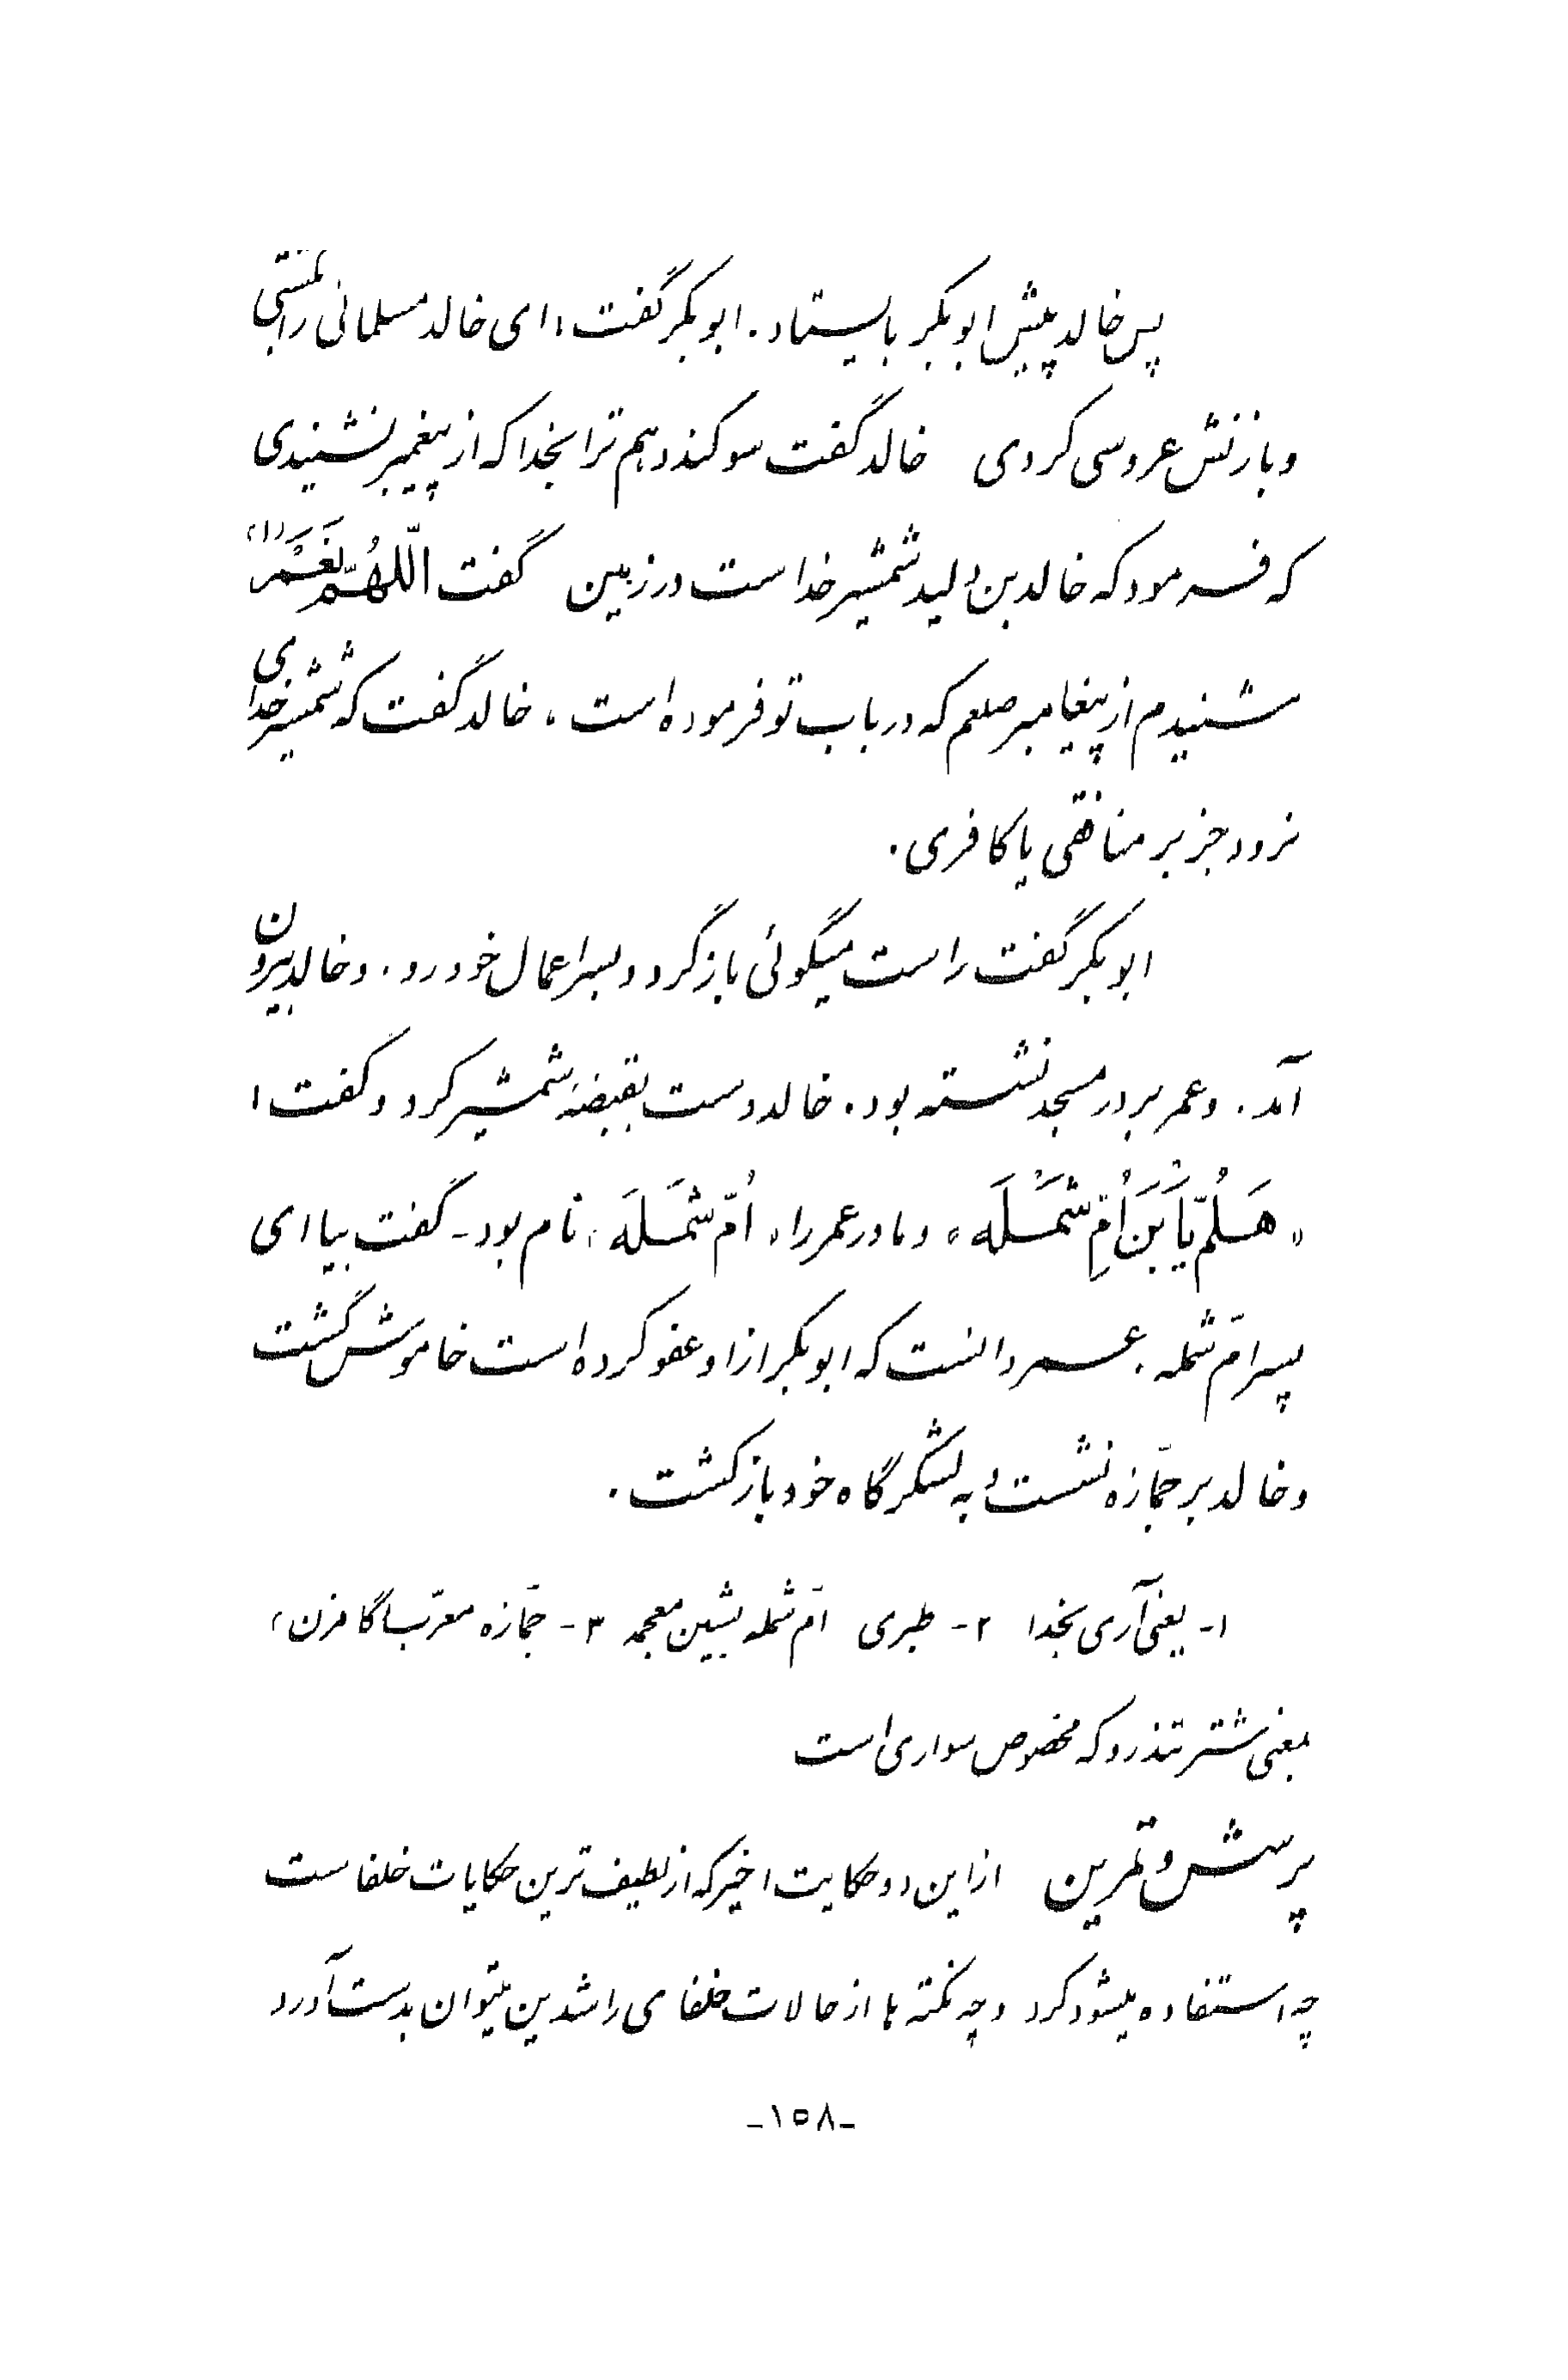 پس خالد پیش ابوبکر بایستاد. ابوبکر گفت، ای خالد مسلمانی را بکشتی
و با زنش عروسی کردی خالد گفت سوگند دهم ترا بخدا که از پیغمبر نشنیدی
که فرمود که خالد بن ولید شمشیر خداست در زمین گفت اللّهُمَّ نَعَمْ (۱)
شنیدم از پیغامبر صلعم که در باب تو فرموده است، خالد گفت که شمشیر خدای
نرود جز بر منافقی یا کافری.
ابوبکر گفت راست میگوئی بازگرد و بسر اعمال خود رو. و خالد بیرون
آمد. و عمر بر در مسجد نشسته بود. خالد دست بقبضهٔ شمشیر کرد و گفت:
«هَلُمَّ یَا بْنَ اُمِّ شَمْلَه» و مادر عمر را «اُمّ شَمْلَه» نام بود ـ گفت بیا ای
پسر امّ شمله. عمر دانست که ابوبکر از او عفو کرده است خاموش گشت
و خالد بر جمّازه نشست و به لشکرگاه خود بازگشت.
۱ـ یعنی آری بخدا ۲ـ طبری امّ شمله بشین معجمه ۳ـ جمّازه معرّب گامزن،
بمعنی شتر تندرو که مخصوص سواری است
پرسش و تمرین از این دو حکایت اخیر که از لطیف ترین حکایات خلفاست
چه استفاده میشود کرد و چه نکته ها از حالات خلفای راشدین میتوان بدست آورد
ـ۱۵۸ـ